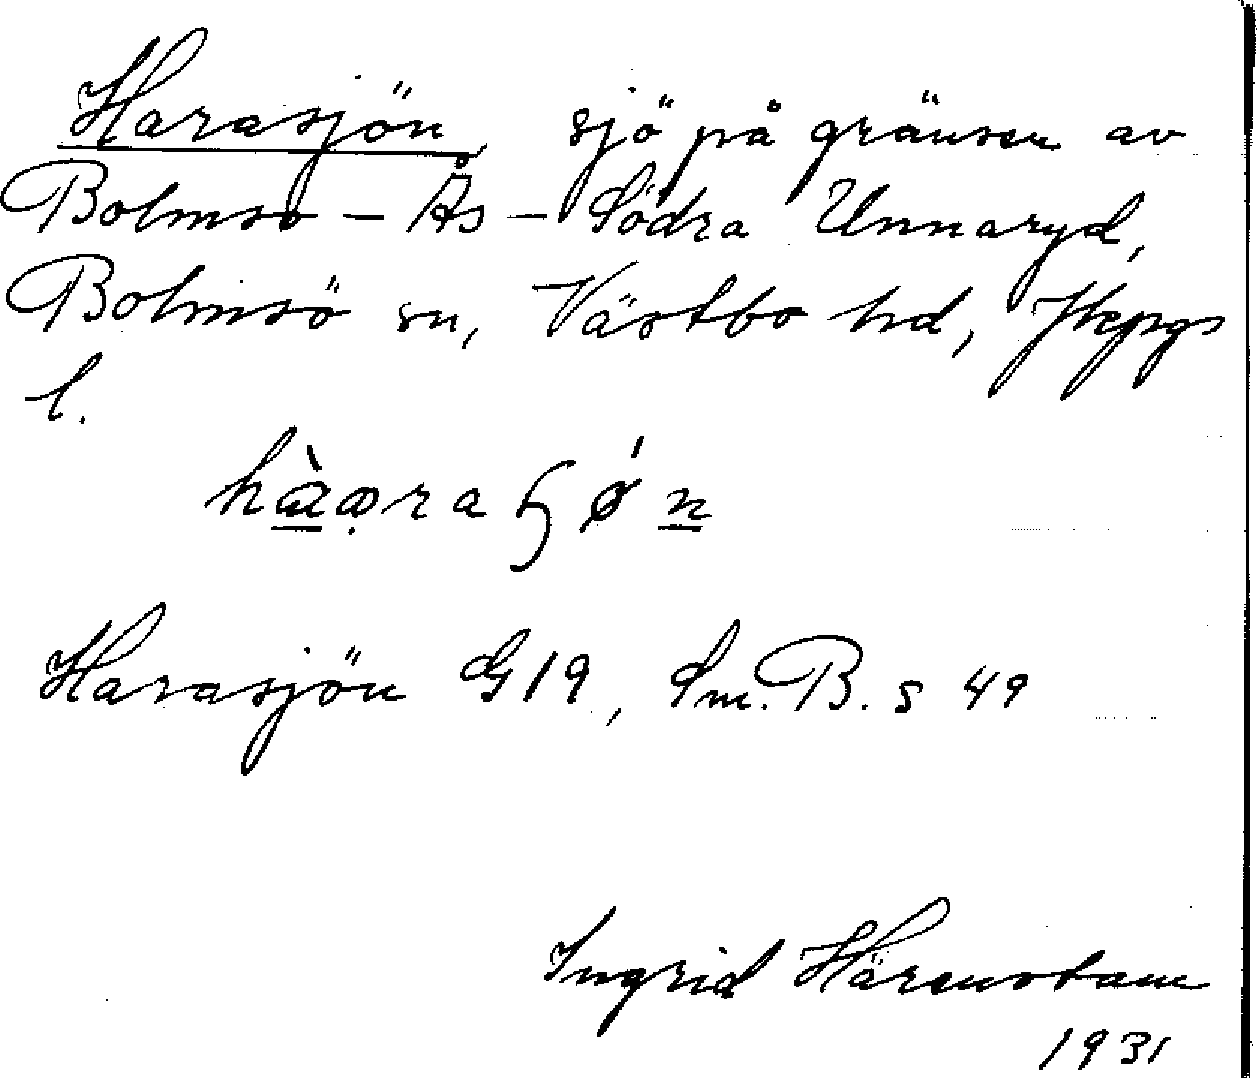 Harasjön, sjö på gränsen av
Bolmsö – Ås – Södra Unnaryd,
Bolmsö sn, Västbo hd, Jkpgs
l.
Harasjön G19, Sm. B. s 49
Ingrid Härenstam
1931